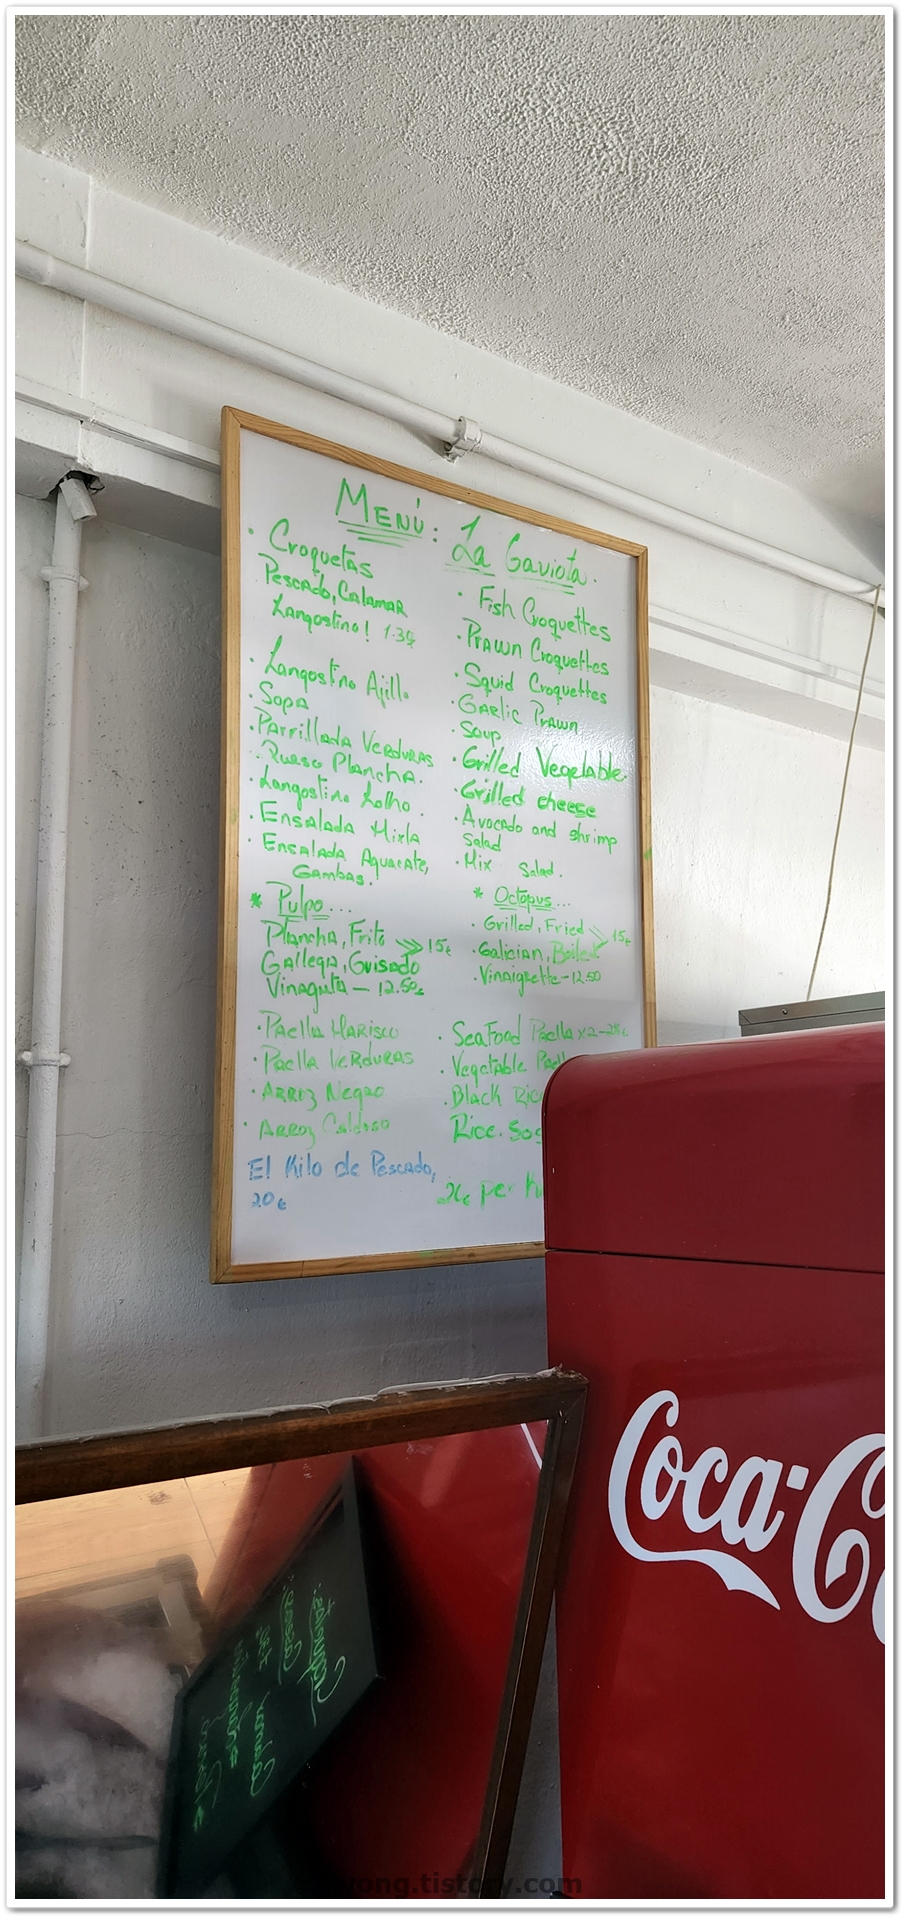 MENÚ: La Gaviota.
· Croquetas
Pescado, Calamar
Langostino!
· Langostino Ajillo
· Sopa
· Parrillada Verduras
· Queso Plancha.
· Langostino Lolho
· Ensalada Mixta
· Ensalada Aguacate,
Gambas.
* Pulpo...
Plancha, Frito
Gallega, Guisado
15€
Vinagreta - 12.50€
· Paella Marisco
· Paella Verduras
· Arroz Negro
· Arroz Caldoso
El Kilo de Pescado,
20€
· Fish Croquettes
· Prawn Croquettes
· Squid Croquettes
· Garlic Prawn
· Soup
· Grilled Vegetable
· Grilled cheese
· Avocado and shrimp
Salad
· Mix Salad.
* Octopus...
· Grilled, Fried
15€
· Galician, Boiled
· Vinaigrette - 12.50
· Seafood Paella x2 -
· Vegetable
· Black
Rice
per
Coca-C
yong.tistory.com